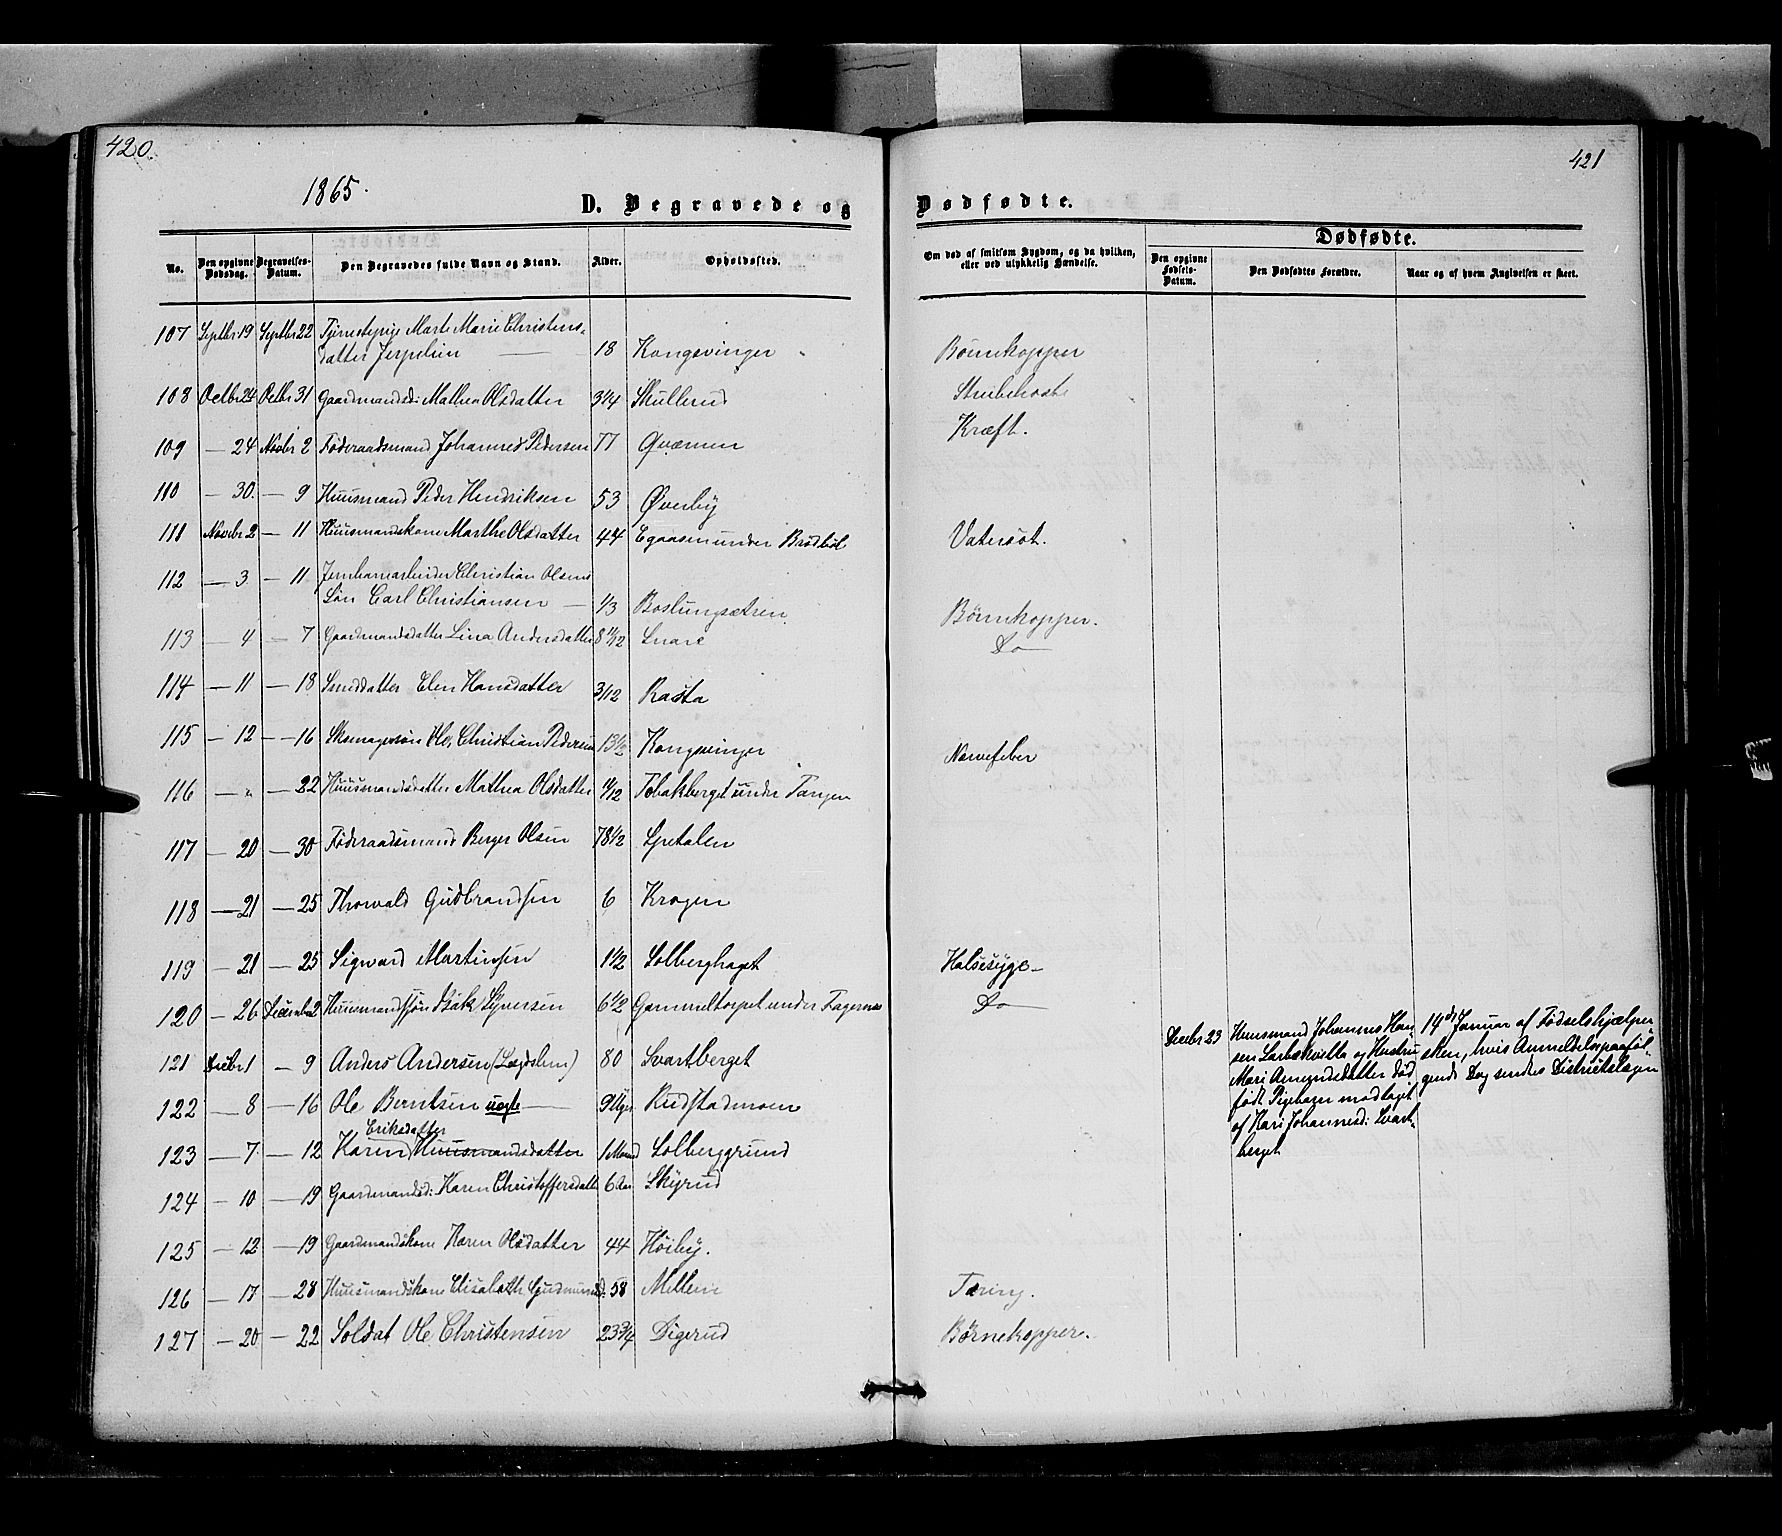 420.
1865.
D. Begravede og
No.
Den opgivne Dødsdag.
Begravelses-Datum.
Den Begravedes fulde Navn og Stand.
Alder.
Opholdssted.
107 Septbr 19 Septbr 22 Tjenestepige Marte Marie Christens-
datter Jerpelien — 18 Kongsvinger
108 Octbr 24 Octbr 31 Gaardmandsd: Mathea Olsdatter 3 1/4 Skullerud
109 — 24 Novbr 2 Føderaadsmand Johannes Pedersen 77 Qværnen
110 — 30. — 9 Huusmand Peder Hendriksen 53 Øverby
111 Novbr 2 — 11 Huusmandskone Marthe Olsdatter 44 under Brødbøl
112 — 3 — 11 Jernbanearbeider Christian Olsens
Søn Carl Christiansen — 1/3
113 — 4 — 7 Gaardmandsdatter Lina Andersdatter 8 11/12 Snare
114 — 11 — 18 Smeddatter Elen Hansdatter 3/12 Rasta
115 — 12 — 16 Skomagersøn Ole Christian Pedersen 13 1/2 Kongsvinger
116 — " — 22 Huusmandsdatter Mathea Olsdatter Tobakberget under Tangen
117 — 20 — 30 Føderaadsmand Berger Olsen 78 1/2 Spetalen
118 — 21 — 25 Thorvald Gudbrandsen 6 Krogen
119 — 21 — 25 Sigvard Martinsen 1 1/2 Solberghaget
120 — 26 December 2 Huusmandssøn Isak Syversen 6 1/2 Gammeltorpet under Fagernæs
121 Decbr 1 — 9 Anders Andersen (Lægdslem) 80 Svartberget
122 — 8 — 16 Ole Berntsen uegte — 9 Uger Rudstadmoen
Eriksdatter
123 — 7 — 12 Karen Huusmandsdatter 1 Maaned Solberggrund
124 — 10 — 19 Gaardmandsd: Karen Christoffersdatter 6 Aar Skyrud
125 — 12 — 19 Gaardmandskone Karen Olsdatter 44 Høiby.
126 — 17 — 28 Huusmandskone Elisabeth Gudmundsd: 58 Mellem
127 — 20 — 22 Soldat Ole Christensen 23 3/4 Digerud
421
Dødfødte.
Om død af smitsom Sygdom, og da hvilken,
eller ved ulykkelig Hændelse.
Dødfødte.
Den opgivne Fødsels-Datum.
Den Dødfødtes Forældre.
Naar og af hvem Angivelsen er skeet.
Børnekopper
Strubehoste
Kræft.
Vatersot.
Børnekopper.
Do —
Nervefeber
Halsesyge —
Do —
Decbr 23 Huusmand Johannes Han- 14de Januar af Fødselshjælper-
sen Larbækvella og Hustru sken, hvis Anmeldelse paaføl-
Mari Amundsdatter død- gende Dag sendes Districtslægen
født Pigebarn modtaget
af Kari Johannesd: Svart-
berget
Tæring.
Børnekopper.